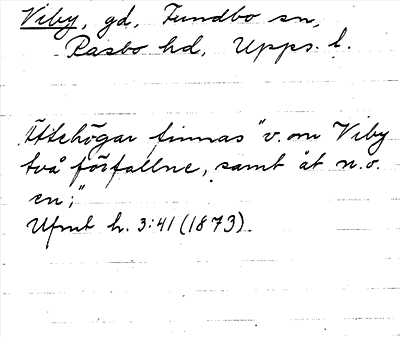 Viby, gd, Tundbo sn,
Rasbo hd, Upps. l.
Ättehögar finnas "v. om Viby
två förfallne, samt åt n.o.
en;"
Ufmt h. 3:41 (1873).